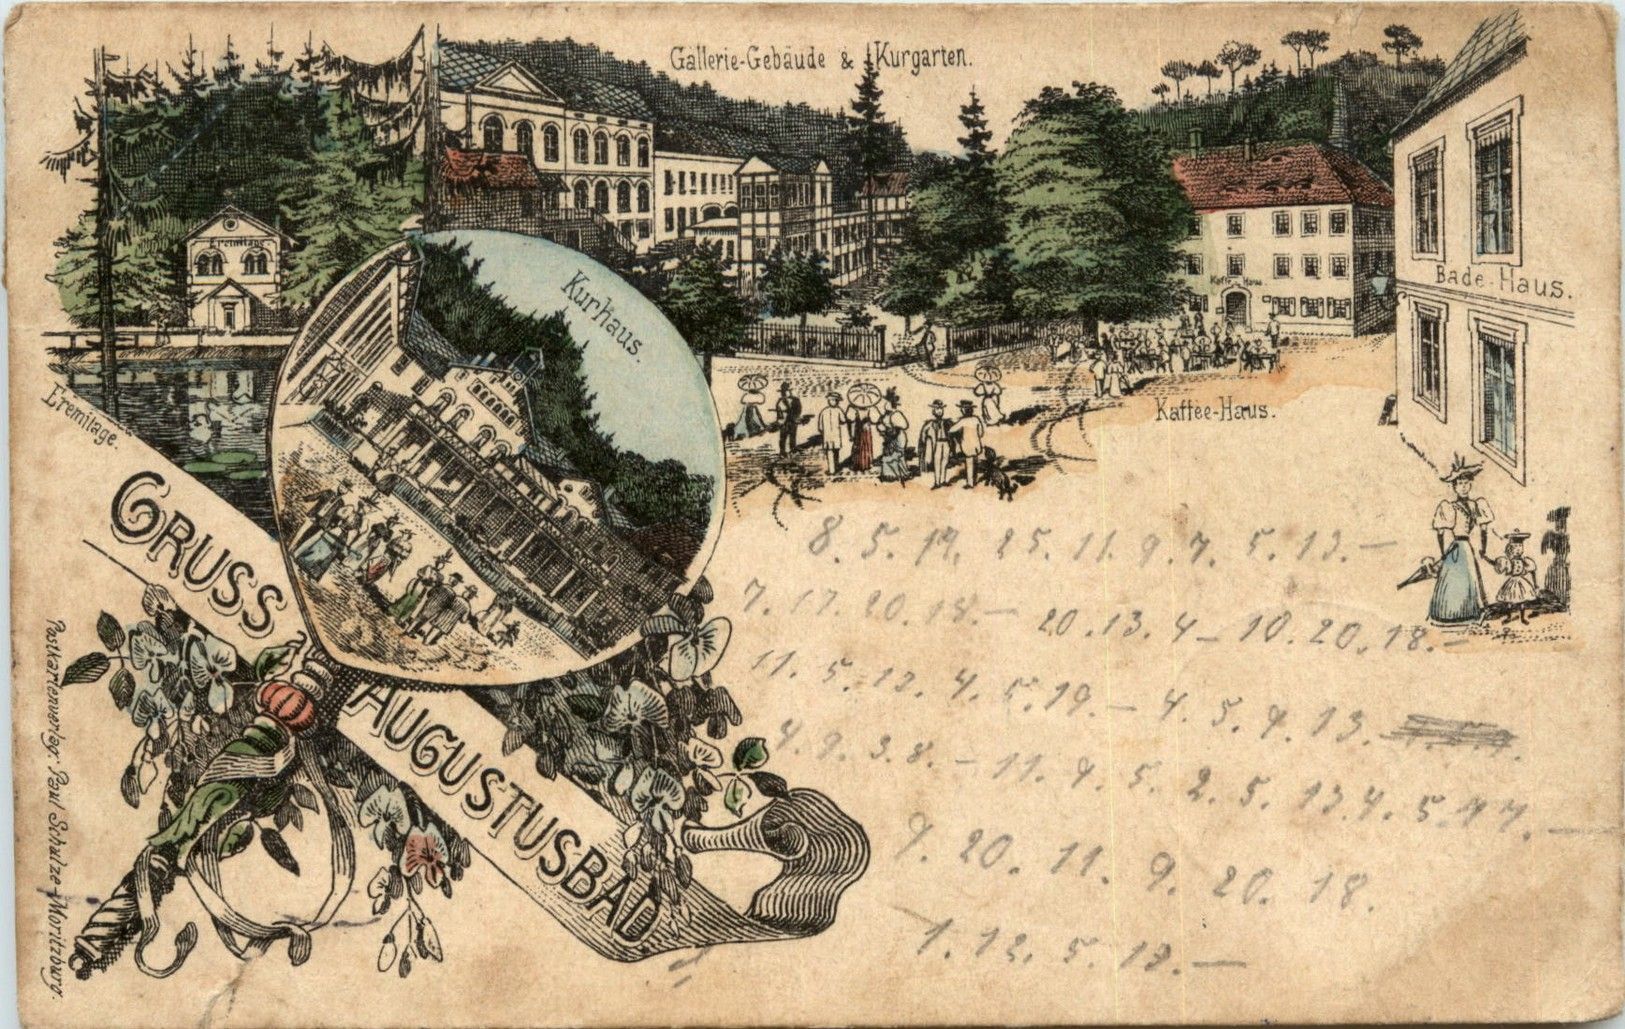 Gallerie-Gebäude & Kurgarten.
Eremitage
Kurhaus.
Kaffe-Haus
Bade-Haus.
Eremitage.
Kaffee-Haus.
GRUSS
AUGUSTUSBAD
Postkartenverlag: Paul Schulze-Moritzburg.
8. 5. 19. 25. 11. 9. 7. 5. 13.—
7. 17. 20. 18.— 20. 13. 4— 10. 20. 18.—
11. 5. 12. 4. 5. 19.— 4. 5. 9. 13.
4. 9. 3. 8.— 11. 9. 5. 2. 5. 13. 4. 5. 17.—
9. 20. 11. 9. 20. 18.
1. 12. 5. 13.—